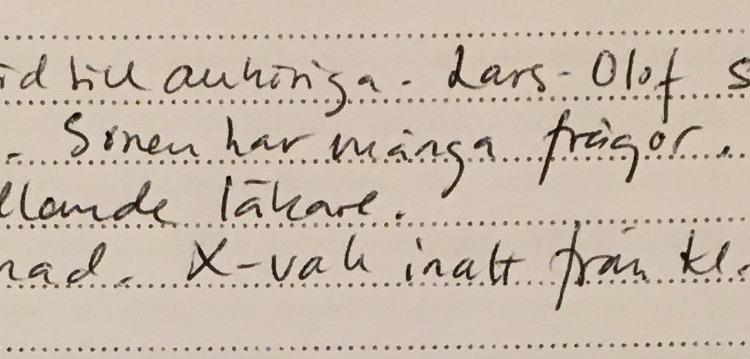 id till anhöriga. Lars-Olof s
. Sonen har många frågor.
llande läkare.
nad. X-vak inatt från kl.